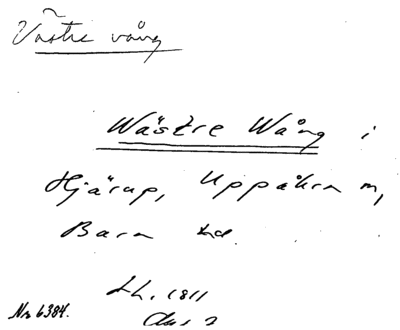 Västre vång
Wästre Wång i
Hjärup, Uppåkra m,
Bara hd.
Lh. 1811
No 6384.